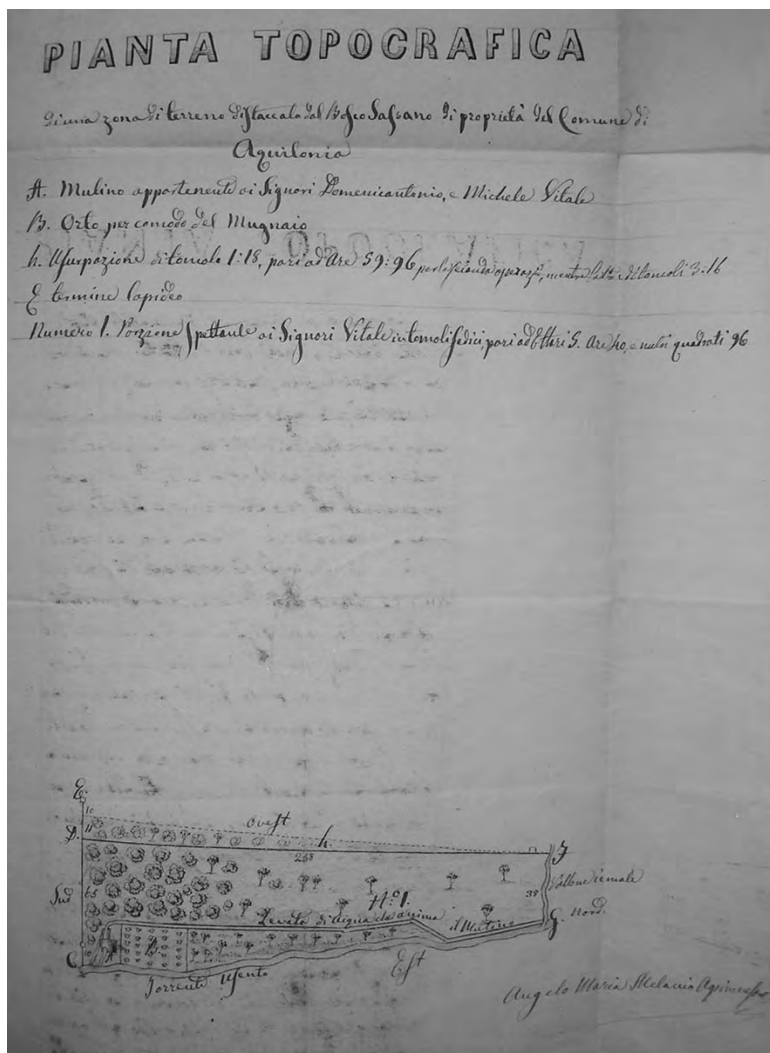 PIANTA TOPOGRAFICA
di una zona di terreno distaccata dal Bosco Sassano di proprietà del Comune di
Aquilonia
A. Mulino appartenente ai Signori Domenicantonio, e Michele Vitale
B. Orto per comodo del Mugnaio
h. Usurpazione di tomolo 1:18, pari ad Are 59:96 per la seconda operaz.e, mentre di tomoli 3:16
E termine lapideo
Numero 1. Porzione spettante ai Signori Vitale in tomoli sedici pari ad Ettari 5. Are 40, e metri quadrati 96
E.
10
ovest
D.
11
h.
258
F
Vallone iemale
Sud
65
N.o 1.
38
Levata di acqua che anima il Mulino
G. Nord.
C
A
B
Torrente Osento
Est
Angelo Maria